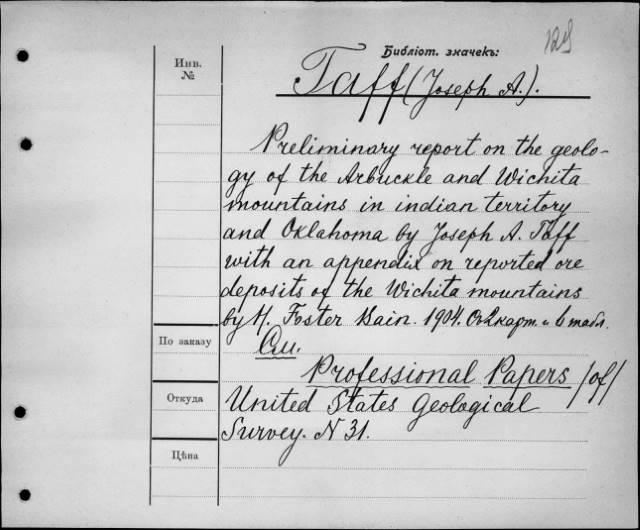 Библіот. значекъ:
Инв.
№
Taff (Joseph A.).
Preliminary report on the geolo-
gy of the Arbuckle and Wichita
mountains in indian territory
and Oklahoma by Joseph A. Taff
with an appendix on reported ore
deposits of the Wichita mountains
by H. Foster Bain. 1904. Съ 2 карт. и 6 табл.
По заказу
См.
Professional Papers /of/
Откуда
United States Geological
Survey. N 31.
Цѣна